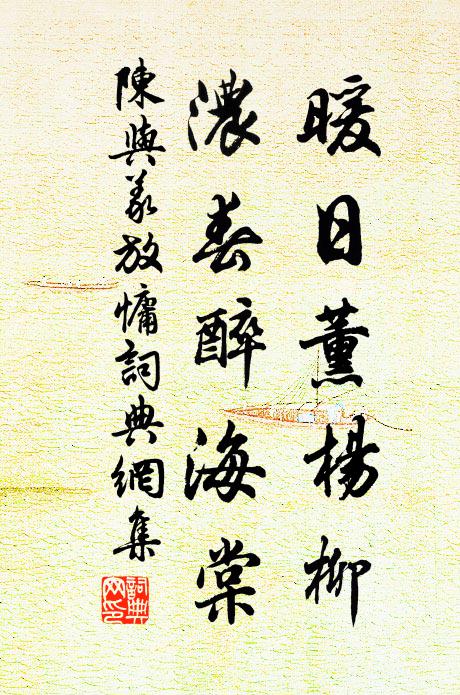 暖日薰楊柳
濃春醉海棠
陳與義放慵詞典網集
詞典网印